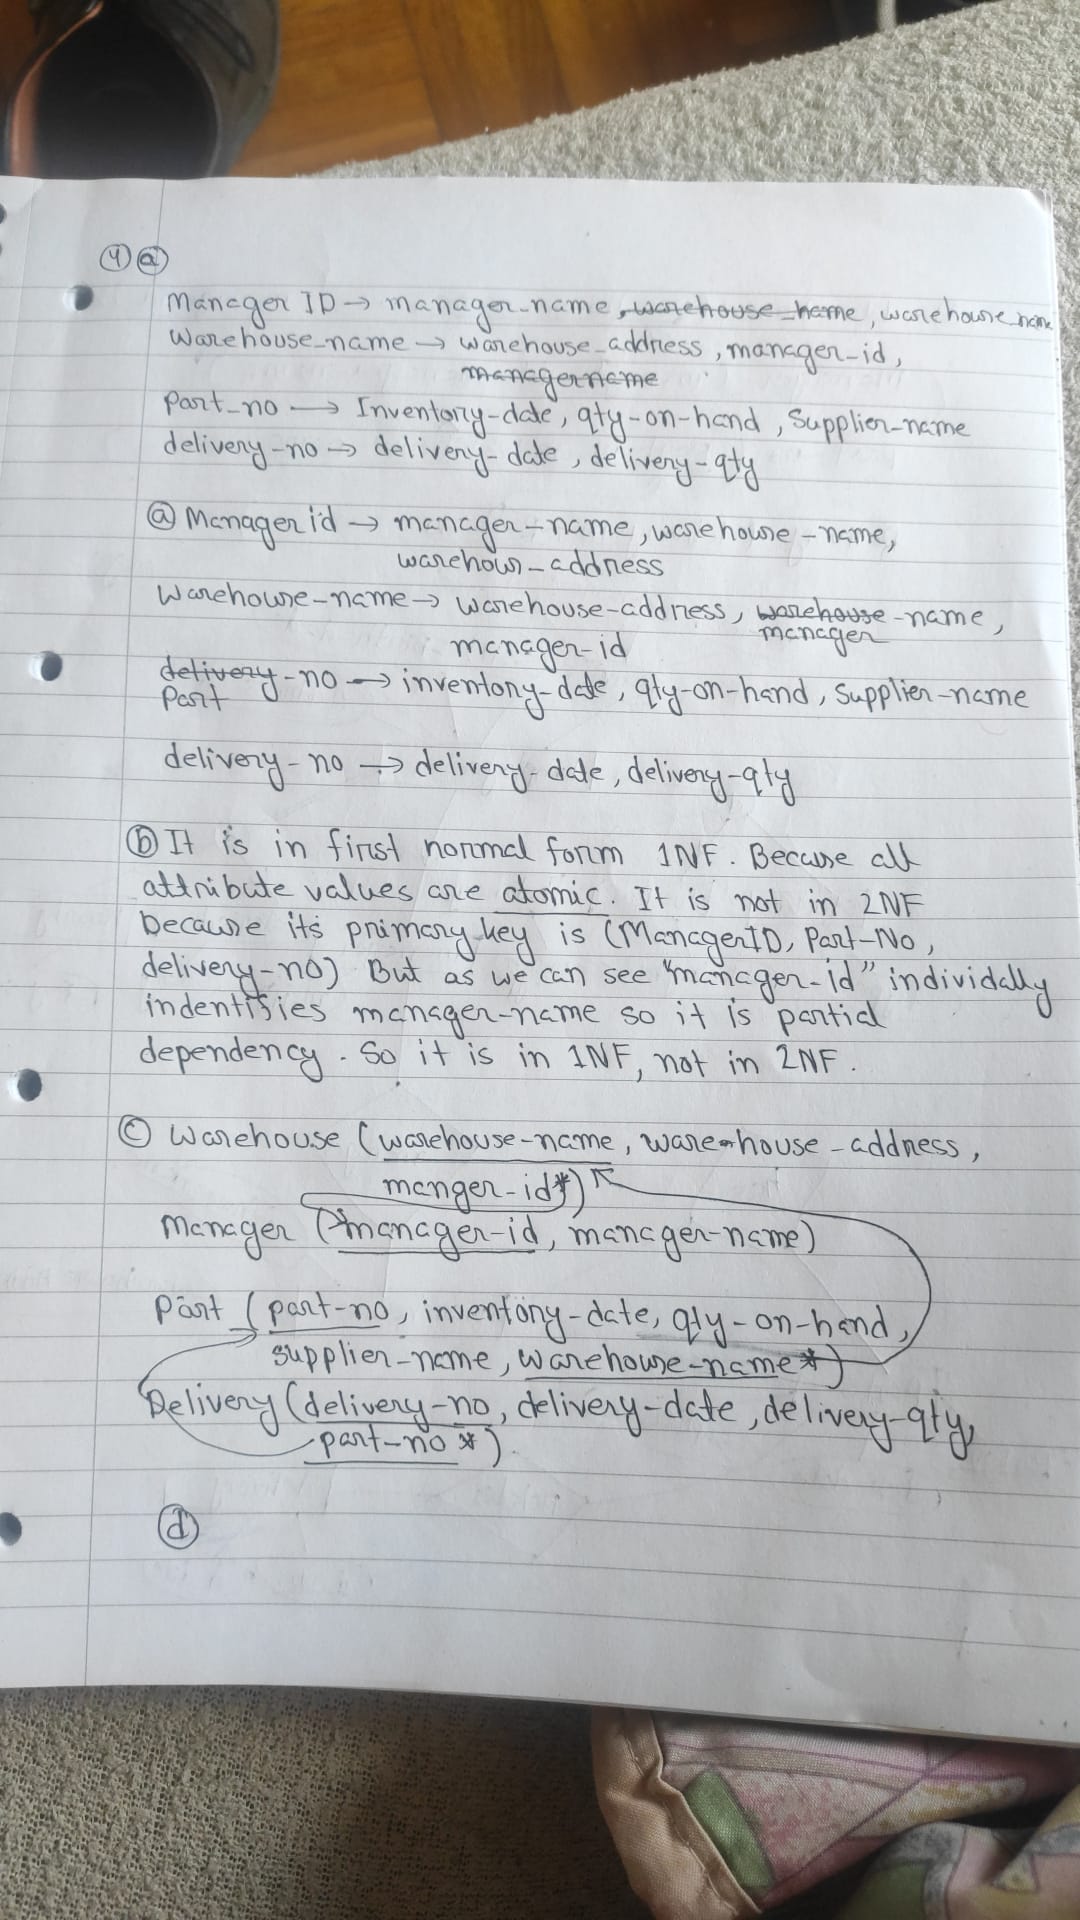 4 a
Manager ID → manager-name, warehouse-name, warehouse name
Warehouse-name → warehouse-address, manager-id,
managername
Part-no → Inventory-date, qty-on-hand, Supplier-name
delivery-no → delivery-date, delivery-qty
a Manager id → manager-name, warehouse-name,
warehous-address
Warehouse-name → warehouse-address, warehouse-name,
manager
manager-id
delivery-no → inventory-date, qty-on-hand, supplier-name
Part
delivery-no → delivery-date, delivery-qty
b It is in first normal form 1NF. Because all
attribute values are atomic. It is not in 2NF
because its primary key is (ManagerID, Part-No,
delivery-no) But as we can see "manager-id" individally
indentifies manager-name so it is partial
dependency. So it is in 1NF, not in 2NF.
c Warehouse (warehouse-name, warehouse-address,
manger-id*)
Manager (manager-id, manager-name)
Part (part-no, inventory-date, qty-on-hand,
supplier-name, warehouse-name*)
Delivery (delivery-no, delivery-date, delivery-qty,
part-no*).
d